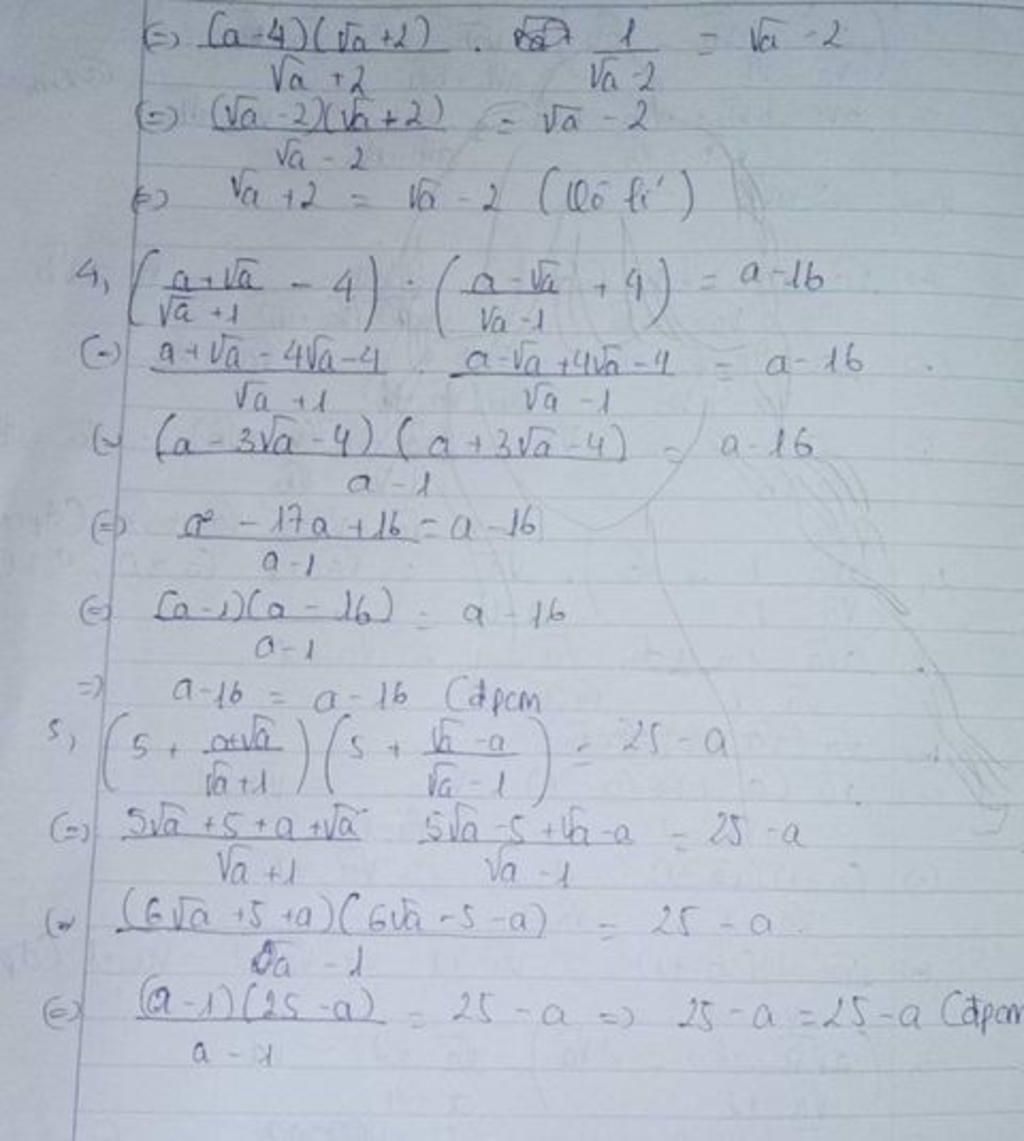 (=) (a-4)(√a+2)/(√a+2) . 1/(√a-2) = √a-2
(=) (√a-2)(√a+2)/(√a-2) = √a-2
(=) √a+2 = √a-2
4, ((a+√a)/(√a+1) - 4) . ((a-√a)/(√a-1) + 4) = a-16
(=) (a+√a-4√a-4)/(√a+1) . (a-√a+4√a-4)/(√a-1) = a-16
(=) (a-3√a-4)(a+3√a-4)/(a-1) = a-16
(=) (a²-17a+16)/(a-1) = a-16
(=) (a-1)(a-16)/(a-1) = a-16
=) a-16 = a-16 (đpcm
5, (5 + (a+√a)/(√a+1)) (5 + (√a-a)/(√a-1)) = 25-a
(=) (5√a+5+a+√a)/(√a+1) (5√a-5+√a-a)/(√a-1) = 25-a
(=) (6√a+5+a)(6√a-5-a)/(a-1) = 25-a
(=) (a-1)(25-a)/(a-1) = 25-a =) 25-a = 25-a (đpcm